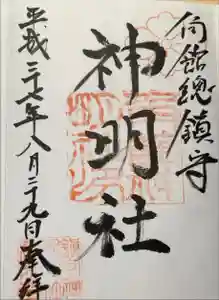 向館總鎮守
神明社
平成二十七年八月二十九日奉拝